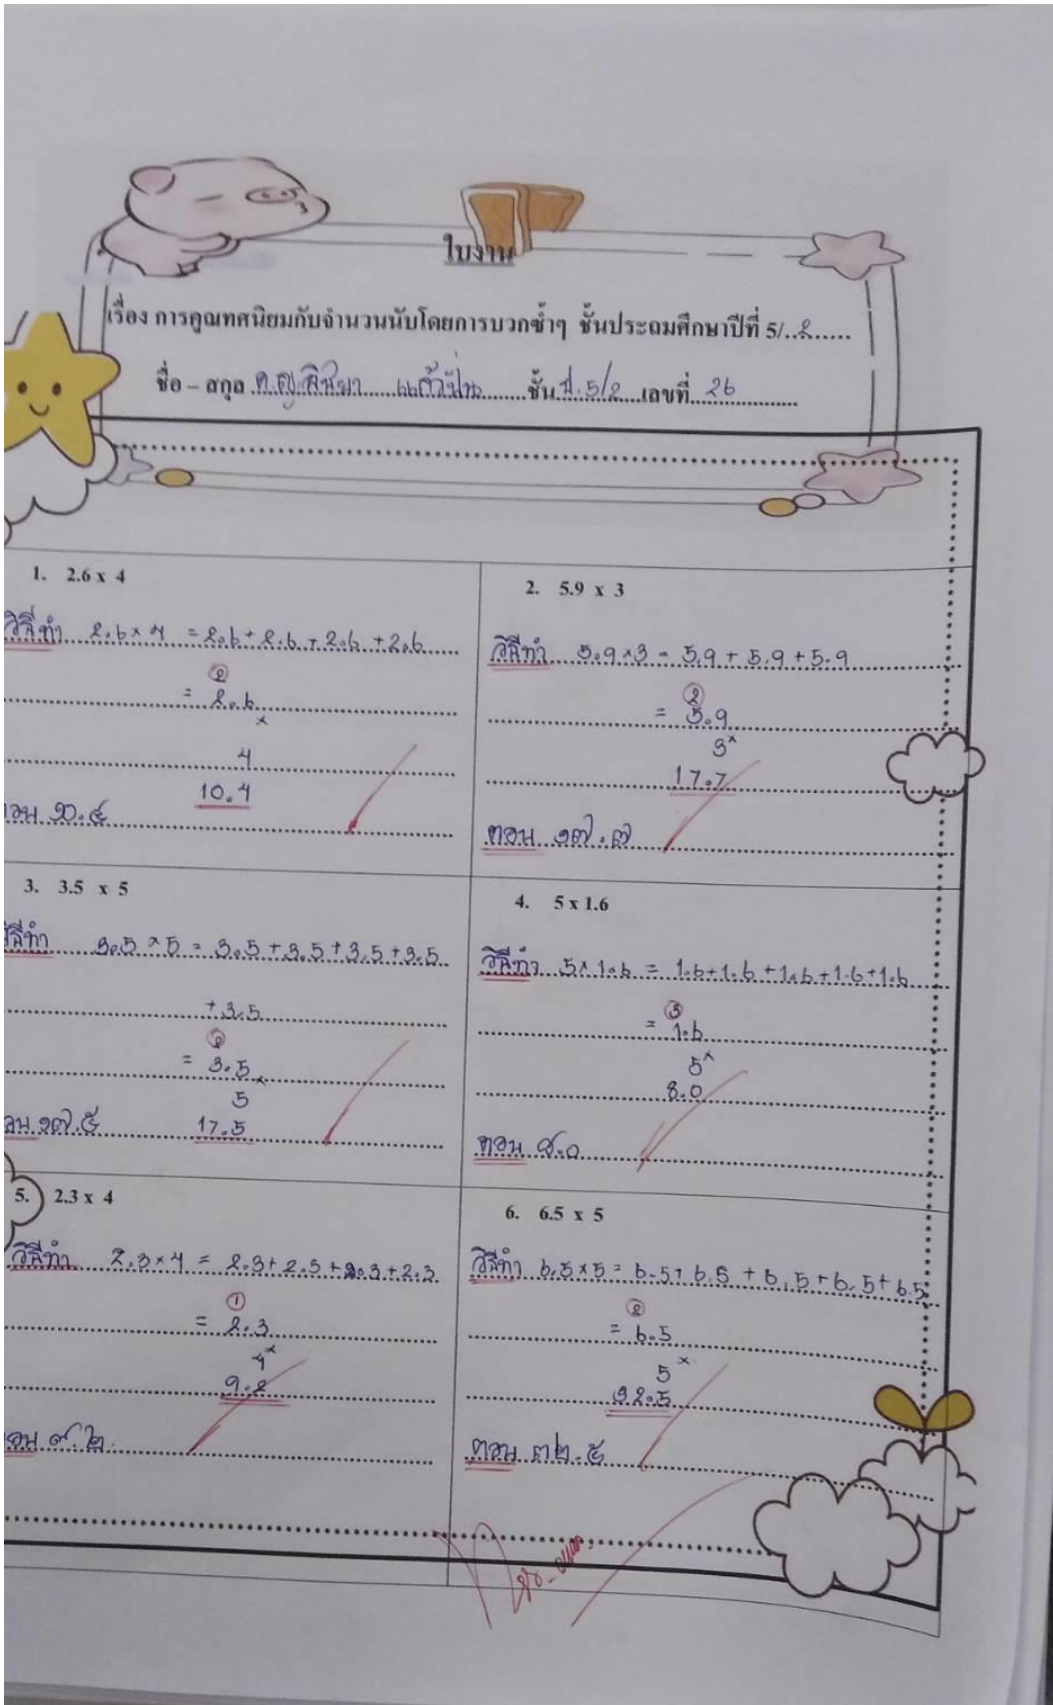 ใบงาน
เรื่อง การคูณทศนิยมกับจำนวนนับโดยการบวกซ้ำๆ ชั้นประถมศึกษาปีที่ 5/..2......
ชื่อ – สกุล ด.ญ. แก้วปั่น ชั้น ป.5/2 เลขที่ 26
1. 2.6 x 4
วิธีทำ 2.6 × 4 = 2.6 + 2.6 + 2.6 + 2.6
②
= 2.6
×
4
10.4
ตอบ ๑๐.๔
2. 5.9 x 3
วิธีทำ 5.9 × 3 = 5.9 + 5.9 + 5.9
②
= 5.9
3 ×
17.7
ตอบ ๑๗.๗
3. 3.5 x 5
วิธีทำ 3.5 × 5 = 3.5 + 3.5 + 3.5 + 3.5
+ 3.5
②
= 3.5
×
5
17.5
ตอบ ๑๗.๕
4. 5 x 1.6
วิธีทำ 5 × 1.6 = 1.6 + 1.6 + 1.6 + 1.6 + 1.6
③
= 1.6
5 ×
8.0
ตอบ ๘.๐
5. 2.3 x 4
วิธีทำ 2.3 × 4 = 2.3 + 2.3 + 2.3 + 2.3
①
= 2.3
4 ×
9.2
ตอบ ๙.๒
6. 6.5 x 5
วิธีทำ 6.5 × 5 = 6.5 + 6.5 + 6.5 + 6.5 + 6.5
②
= 6.5
5 ×
32.5
ตอบ ๓๒.๕